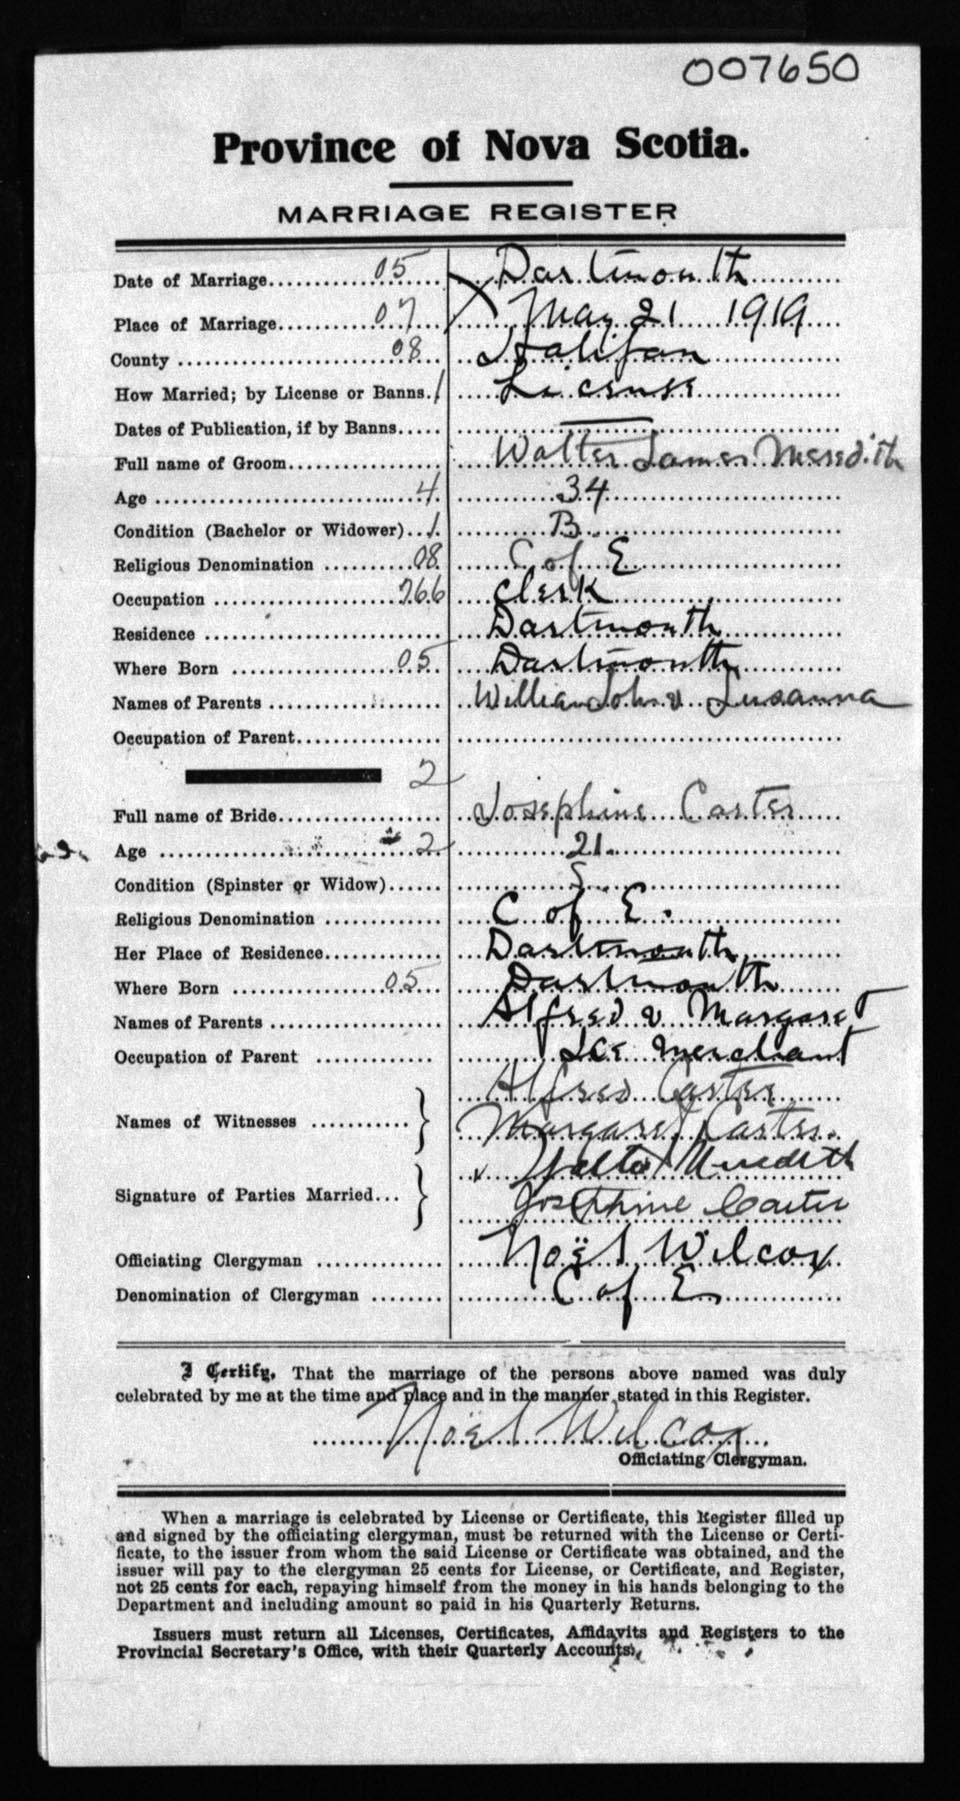 007650
Province of Nova Scotia.
MARRIAGE REGISTER
Date of Marriage 05 Dartmouth
Place of Marriage 07 May 21 1919
County 08 Halifax
How Married; by License or Banns. 1 License
Dates of Publication, if by Banns —
Full name of Groom Walter James Meredith
Age 4 34
Condition (Bachelor or Widower) 1 B
Religious Denomination 08 C of E
Occupation 766 Clerk
Residence Dartmouth
Where Born 05 Dartmouth
Names of Parents William John & Susanna
Occupation of Parent
2
Full name of Bride Josephine Carter
Age 2 21.
Condition (Spinster or Widow) S
Religious Denomination C of E.
Her Place of Residence Dartmouth
Where Born 05 Dartmouth
Names of Parents Alfred & Margaret
Occupation of Parent Ice Merchant
Alfred Carter
Names of Witnesses
Margaret Carter.
Walter Meredith
Signature of Parties Married
Josephine Carter
Officiating Clergyman Noël Wilcox
Denomination of Clergyman C of E
I Certify, That the marriage of the persons above named was duly
celebrated by me at the time and place and in the manner stated in this Register.
Noël Wilcox
Officiating Clergyman.
When a marriage is celebrated by License or Certificate, this Register filled up
and signed by the officiating clergyman, must be returned with the License or Certi-
ficate, to the issuer from whom the said License or Certificate was obtained, and the
issuer will pay to the clergyman 25 cents for License, or Certificate, and Register,
not 25 cents for each, repaying himself from the money in his hands belonging to the
Department and including amount so paid in his Quarterly Returns.
Issuers must return all Licenses, Certificates, Affidavits and Registers to the
Provincial Secretary's Office, with their Quarterly Accounts.